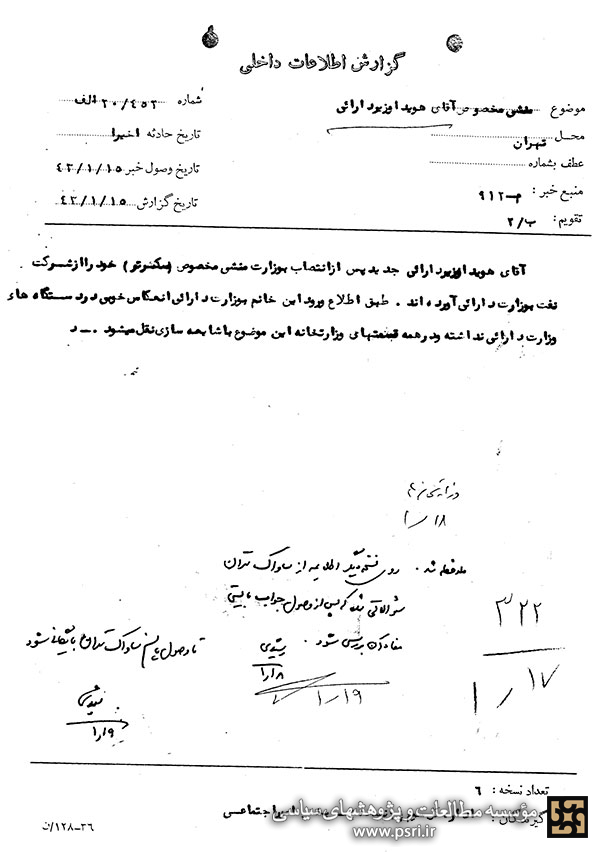 گزارش اطلاعات داخلی
موضوع منشی مخصوص آقای هویدا وزیر دارائی
شماره ۲۰/۴۵۲ الف
محل تهران
تاریخ حادثه اخیرا
عطف بشماره
تاریخ وصول خبر ۴۳/۱/۱۵
منبع خبر: م-۹۱۲
تاریخ گزارش ۴۳/۱/۱۵
تقویم: ب/۲
آقای هویدا وزیر دارائی جدید پس از انتصاب بوزارت منشی مخصوص (سکرتر) خود را از شرکت
نفت بوزارت دارائی آورده اند . طبق اطلاع ورود این خانم بوزارت دارائی انعکاس خوبی در دستگاه های
وزارت دارائی نداشته و در همه قسمتهای وزارتخانه این موضوع با شایعه سازی نقل میشود . ـ د
۱/۱۸
ملاحظه شد . روی نسخه دیگر اطلاعیه از ساواک تهران
سئوالاتی شده که پس از وصول جواب بایستی
مفاد آن بررسی شود .
۱/۱۸
۱/۱۹
۳۲۲
۱/۱۷
تا وصول پاسخ ساواک تهران بایگانی شود
۱/۱۹
تعداد نسخه : ۶
گیرندگان :
اجتماعی
۱۲۸-۳۶/ن
مؤسسه مطالعات و پژوهشهای سیاسی
www.psri.ir